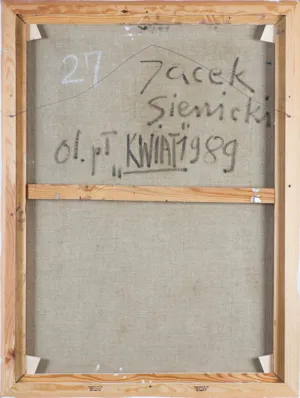 27
Jacek
Sienicki
ol. pł „KWIAT" 1989